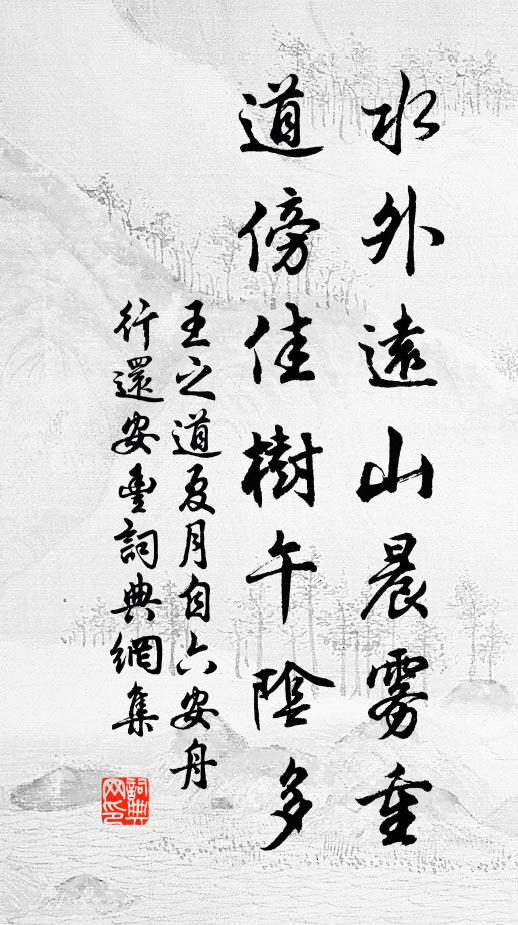 水外遠山晨霧重
道傍佳樹午陰多
王之道夏月自六安舟
行還安豐詞典網集
詞典网印